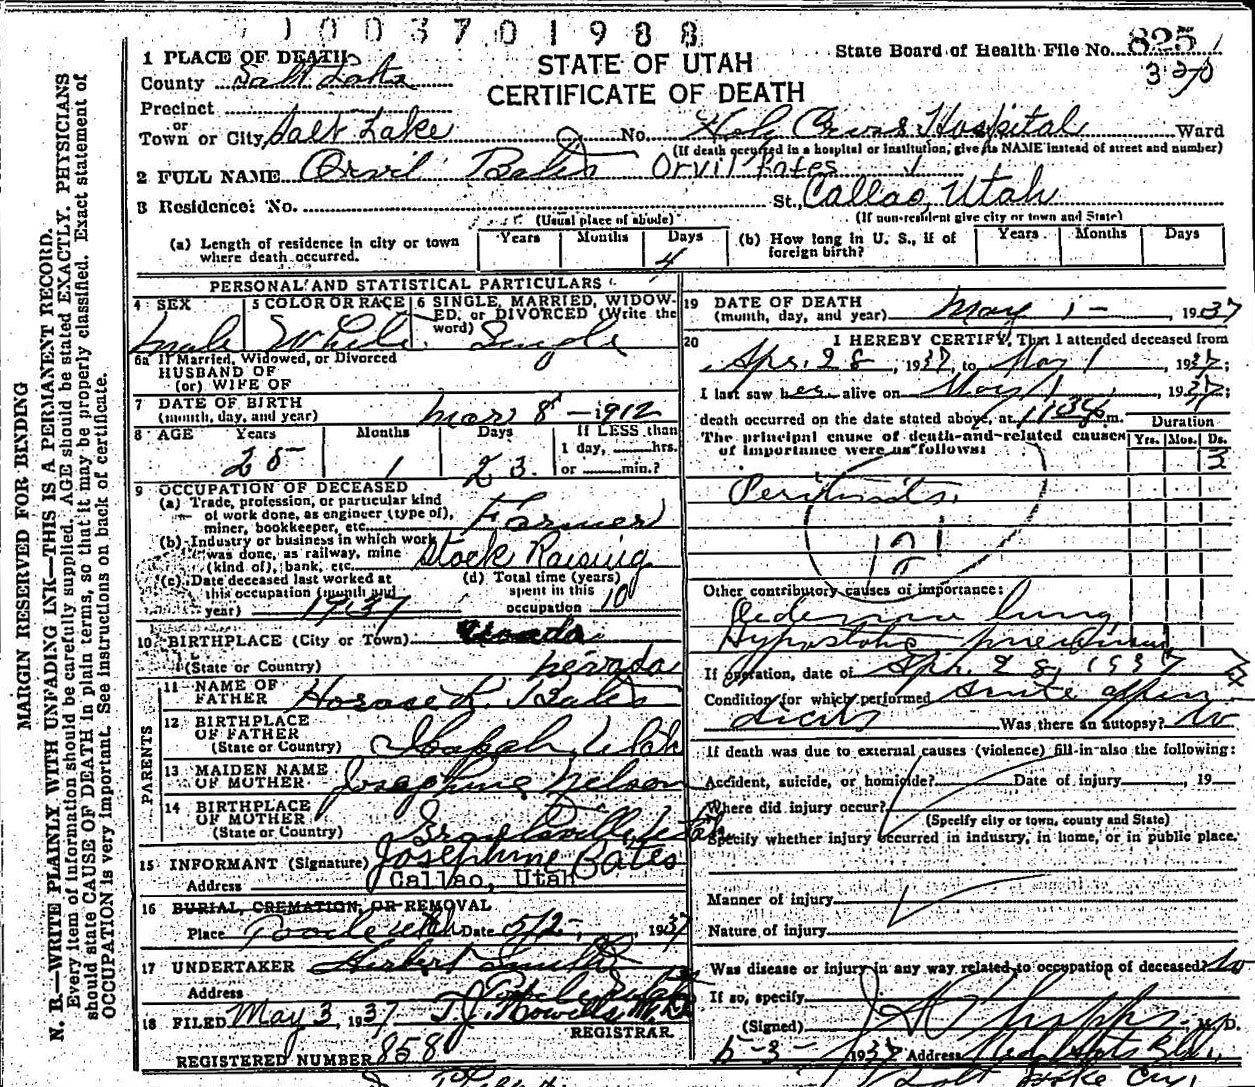 1003701988
STATE OF UTAH
CERTIFICATE OF DEATH
State Board of Health File No. 825
370
MARGIN RESERVED FOR BINDING
N. B.—WRITE PLAINLY WITH UNFADING INK—THIS IS A PERMANENT RECORD.
Every item of information should be carefully supplied. AGE should be stated EXACTLY. PHYSICIANS
should state CAUSE OF DEATH in plain terms, so that it may be properly classified. Exact statement of
OCCUPATION is very important. See instructions on back of certificate.
1 PLACE OF DEATH
County Salt Lake
Precinct
or
Town or City Salt Lake No. Holy Cross Hospital Ward
(If death occurred in a hospital or institution, give its NAME instead of street and number)
2 FULL NAME Orvil Bates Orvil Bates
3 Residence: No. St., Callao, Utah
(Usual place of abode) (If non-resident give city or town and State)
(a) Length of residence in city or town where death occurred. Years Months Days 4
(b) How long in U. S., if of foreign birth? Years Months Days
PERSONAL AND STATISTICAL PARTICULARS
4 SEX Male
5 COLOR OR RACE White
6 SINGLE, MARRIED, WIDOWED, or DIVORCED (Write the word) Single
6a If Married, Widowed, or Divorced
HUSBAND OF
(or) WIFE OF
7 DATE OF BIRTH
(month, day, and year) Mar 8 - 1912
8 AGE Years 25 Months 1 Days 23 If LESS than
1 day, hrs.
or min.?
9 OCCUPATION OF DECEASED
(a) Trade, profession, or particular kind
of work done, as engineer (type of),
miner, bookkeeper, etc. Farmer
(b) Industry or business in which work
was done, as railway, mine
(kind of), bank, etc. Stock Raising
(c) Date deceased last worked at
this occupation (month and
year) 1937
(d) Total time (years)
spent in this
occupation 10
10 BIRTHPLACE (City or Town)
(State or Country) Nevada
PARENTS
11 NAME OF
FATHER Horase R. Bates
12 BIRTHPLACE
OF FATHER
(State or Country) Ibapah, Utah
13 MAIDEN NAME
OF MOTHER Josephine Nelson
14 BIRTHPLACE
OF MOTHER
(State or Country) Grantsville, Utah
15 INFORMANT (Signature) Josephine Bates
Address Callao, Utah
16 BURIAL, CREMATION, OR REMOVAL
Place Tooele Utah Date 5/2-, 1937
17 UNDERTAKER Herbert Smith
Address Tooele Utah
18 FILED May 3, 1937 T. J. Howells, M.D.
REGISTRAR.
REGISTERED NUMBER 858
19 DATE OF DEATH
(month, day, and year) May 1 - , 1937
20 I HEREBY CERTIFY, That I attended deceased from
Apr. 28, 1937, to May 1, 1937;
I last saw her alive on May 1, 1937;
death occurred on the date stated above, at m.
The principal cause of death and related causes
of importance were as follows:
Duration
Yrs. Mos. Ds.
3
Peritonitis.
121
Other contributory causes of importance:
Oedema lung
Hypostatic pneumonia
If operation, date of Apr. 28, 1937
Condition for which performed Acute appendicitis
Was there an autopsy? No
If death was due to external causes (violence) fill in also the following:
Accident, suicide, or homicide? Date of injury , 19
Where did injury occur?
(Specify city or town, county and State)
Specify whether injury occurred in industry, in home, or in public place.
Manner of injury
Nature of injury
Was disease or injury in any way related to occupation of deceased? No
If so, specify
(Signed) M. D.
5-3- 1937 Address Med Arts Bldg.
Salt Lake City